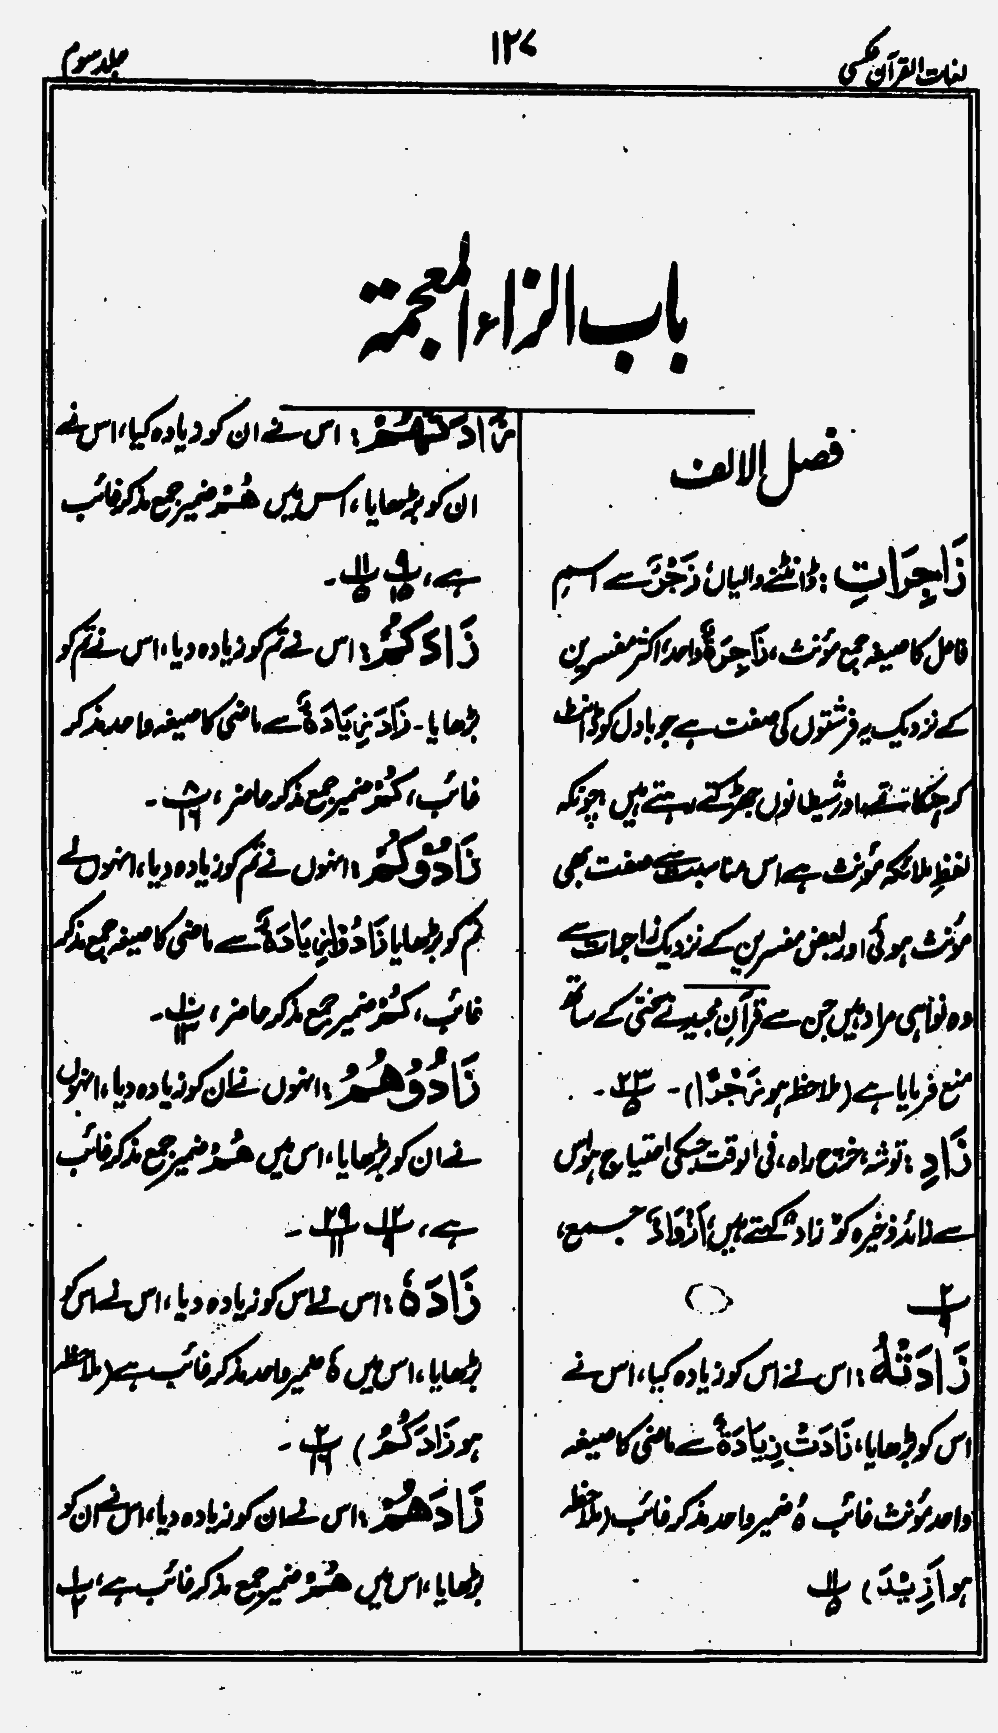 لغات القرآن عکسی
۱۲۷
جلد سوم
باب الزاء المعجمۃ
فصل الالف
زَاجِرَاتِ: ڈانٹنے والیاں زَجْرٌ سے اسم
فاعل کا صیغہ جمع مؤنث، زَاجِرَۃٌ واحد، اکثر مفسرین
کے نزدیک یہ فرشتوں کی صفت ہے جو بادل کو ڈانٹ
کر ہنکاتے اور شیطانوں جھڑکتے رہتے ہیں چونکہ
لفظ ملائکہ مؤنث ہے اس مناسبت سے صفت بھی
مؤنث ہوئی اور بعض مفسرین کے نزدیک زاجرات سے
وہ نواہی مراد ہیں جن سے قرآن مجید نے سختی کے ساتھ
منع فرمایا ہے (ملاحظہ ہو زَجْرًا)۔ ۲۳/۵۔
زَادِ: توشہ، خرچ راہ، فی الوقت جس کی احتیاج ہو اس
سے زائد ذخیرہ کو "زاد" کہتے ہیں، اَزْوَادٌ جمع،
۲/۹
زَادَتْهُ: اس نے اس کو زیادہ کیا، اس نے
اس کو بڑھایا، زَادَتْ زِیَادَۃٌ سے ماضی کا صیغہ
واحد مؤنث غائب ہُ ضمیر واحد مذکر غائب (ملاحظہ
ہو اَزِیْدَ) ۱۱/۵
زَادَتْهُمْ: اس نے ان کو زیادہ کیا، اس نے
ان کو بڑھایا، اس میں هُمْ ضمیر جمع مذکر غائب
ہے، ۹/۱۵ ۱۱/۵۔
زَادَكُمْ: اس نے تم کو زیادہ دیا، اس نے تم کو
بڑھایا۔ زَادَ زِیَادَۃٌ سے ماضی کا صیغہ واحد مذکر
غائب، كُمْ ضمیر جمع مذکر حاضر، ۸/۱۶۔
زَادُوْكُمْ: انہوں نے تم کو زیادہ دیا، انہوں نے
تم کو بڑھایا زَادُوْا زِیَادَۃٌ سے ماضی کا صیغہ جمع مذکر
غائب، كُمْ ضمیر جمع مذکر حاضر، ۱۰/۱۳۔
زَادُوْهُمْ: انہوں نے ان کو زیادہ دیا، انہوں
نے ان کو بڑھایا، اس میں هُمْ ضمیر جمع مذکر غائب
ہے، ۱۲/۹ ۲۹/۱۱۔
زَادَهٗ: اس نے اس کو زیادہ دیا، اس نے اس کو
بڑھایا، اس میں ہٗ ضمیر واحد مذکر غائب ہے (ملاحظہ
ہو زَادَكُمْ) ۲/۱۶۔
زَادَهُمْ: اس نے ان کو زیادہ دیا، اس نے ان کو
بڑھایا، اس میں هُمْ ضمیر جمع مذکر غائب ہے، ۱/۲